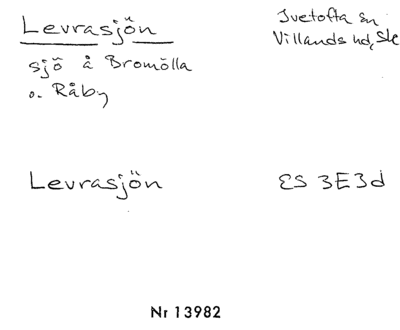 Levrasjön
Ivetofta sn
Villands hd, Sk
sjö å Bromölla
o. Råby
Levrasjön
ES 3E3d
Nr 13982